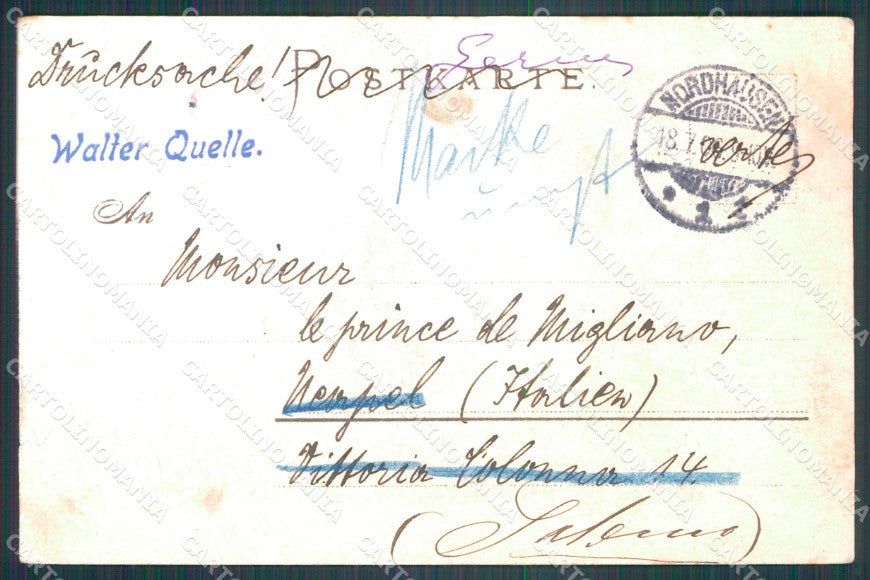 Drucksache! POSTKARTE.
Marke
Walter Quelle.
NORDHAUSEN
18.7.
1
An
Monsieur
le prince de Migliano,
Neapel (Italien)
Vittoria Colonna 14.
(Salerno)
CARTOLINOMANIA